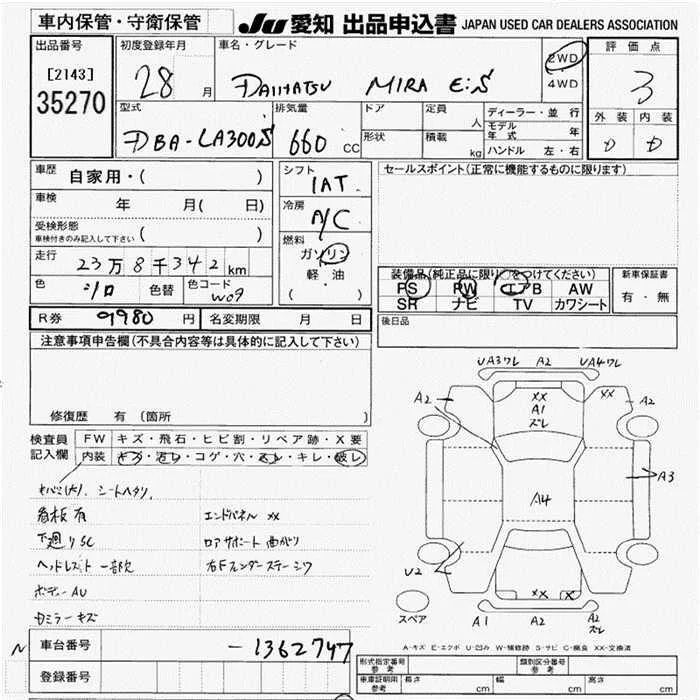 車内保管・守衛保管
JU 愛知 出品申込書 JAPAN USED CAR DEALERS ASSOCIATION
出品番号
[2143]
35270
初度登録年月
28 月
車名・グレード
DAIHATSU MIRA E:S
2WD
・
4WD
評価点
3
外装 内装
D D
型式
DBA-LA300S
排気量
660 CC
ドア
形状
定員 人
積載 kg
ディーラー・並行
モデル年式 年
ハンドル 左・右
車歴 自家用・( )
車検 年 月( 日)
受検形態
車検付きのみ記入して下さい ( )
走行 23万8千342km
色 シロ 色替 色コード W09
シフト
IAT
冷房
A/C
燃料
ガソリン
軽・油
( ・ )
セールスポイント(正常に機能するものに限ります)
装備品(純正品に限り○をつけてください)
PS PW エアB AW
SR ナビ TV カワシート
新車保証書
有・無
後日品
R券 9980円 名変期限 月 日
注意事項申告欄(不具合内容等は具体的に記入して下さい)
修復歴 有 〔箇所
検査員
記入欄
FW キズ・飛石・ヒビ割・リペア跡・X要
内装 キズ・汚レ・コゲ・穴・スレ・キレ・破レ
シートヘタリ
看板有 エンドパネル XX
下廻りSC ロアサポート曲がり
ヘッドレスト一部欠 右Fフェンダーステーシワ
ボディーAU
ミラーキズ
UA3ワレ A2 UA4ワレ
A2 XX XX A2
A1
ズレ
A4 A3
U2
XX X
スペア A1 A2 A2
ズレ
A-キズ E-エクボ U-凹み W-補修跡 S-サビ C-腐食 XX-交換済
N 車台番号 -1362747
登録番号
形式指定番号 参考
類別区分番号 参考
車庫証明用 参考 長さ cm 幅 cm 高さ cm